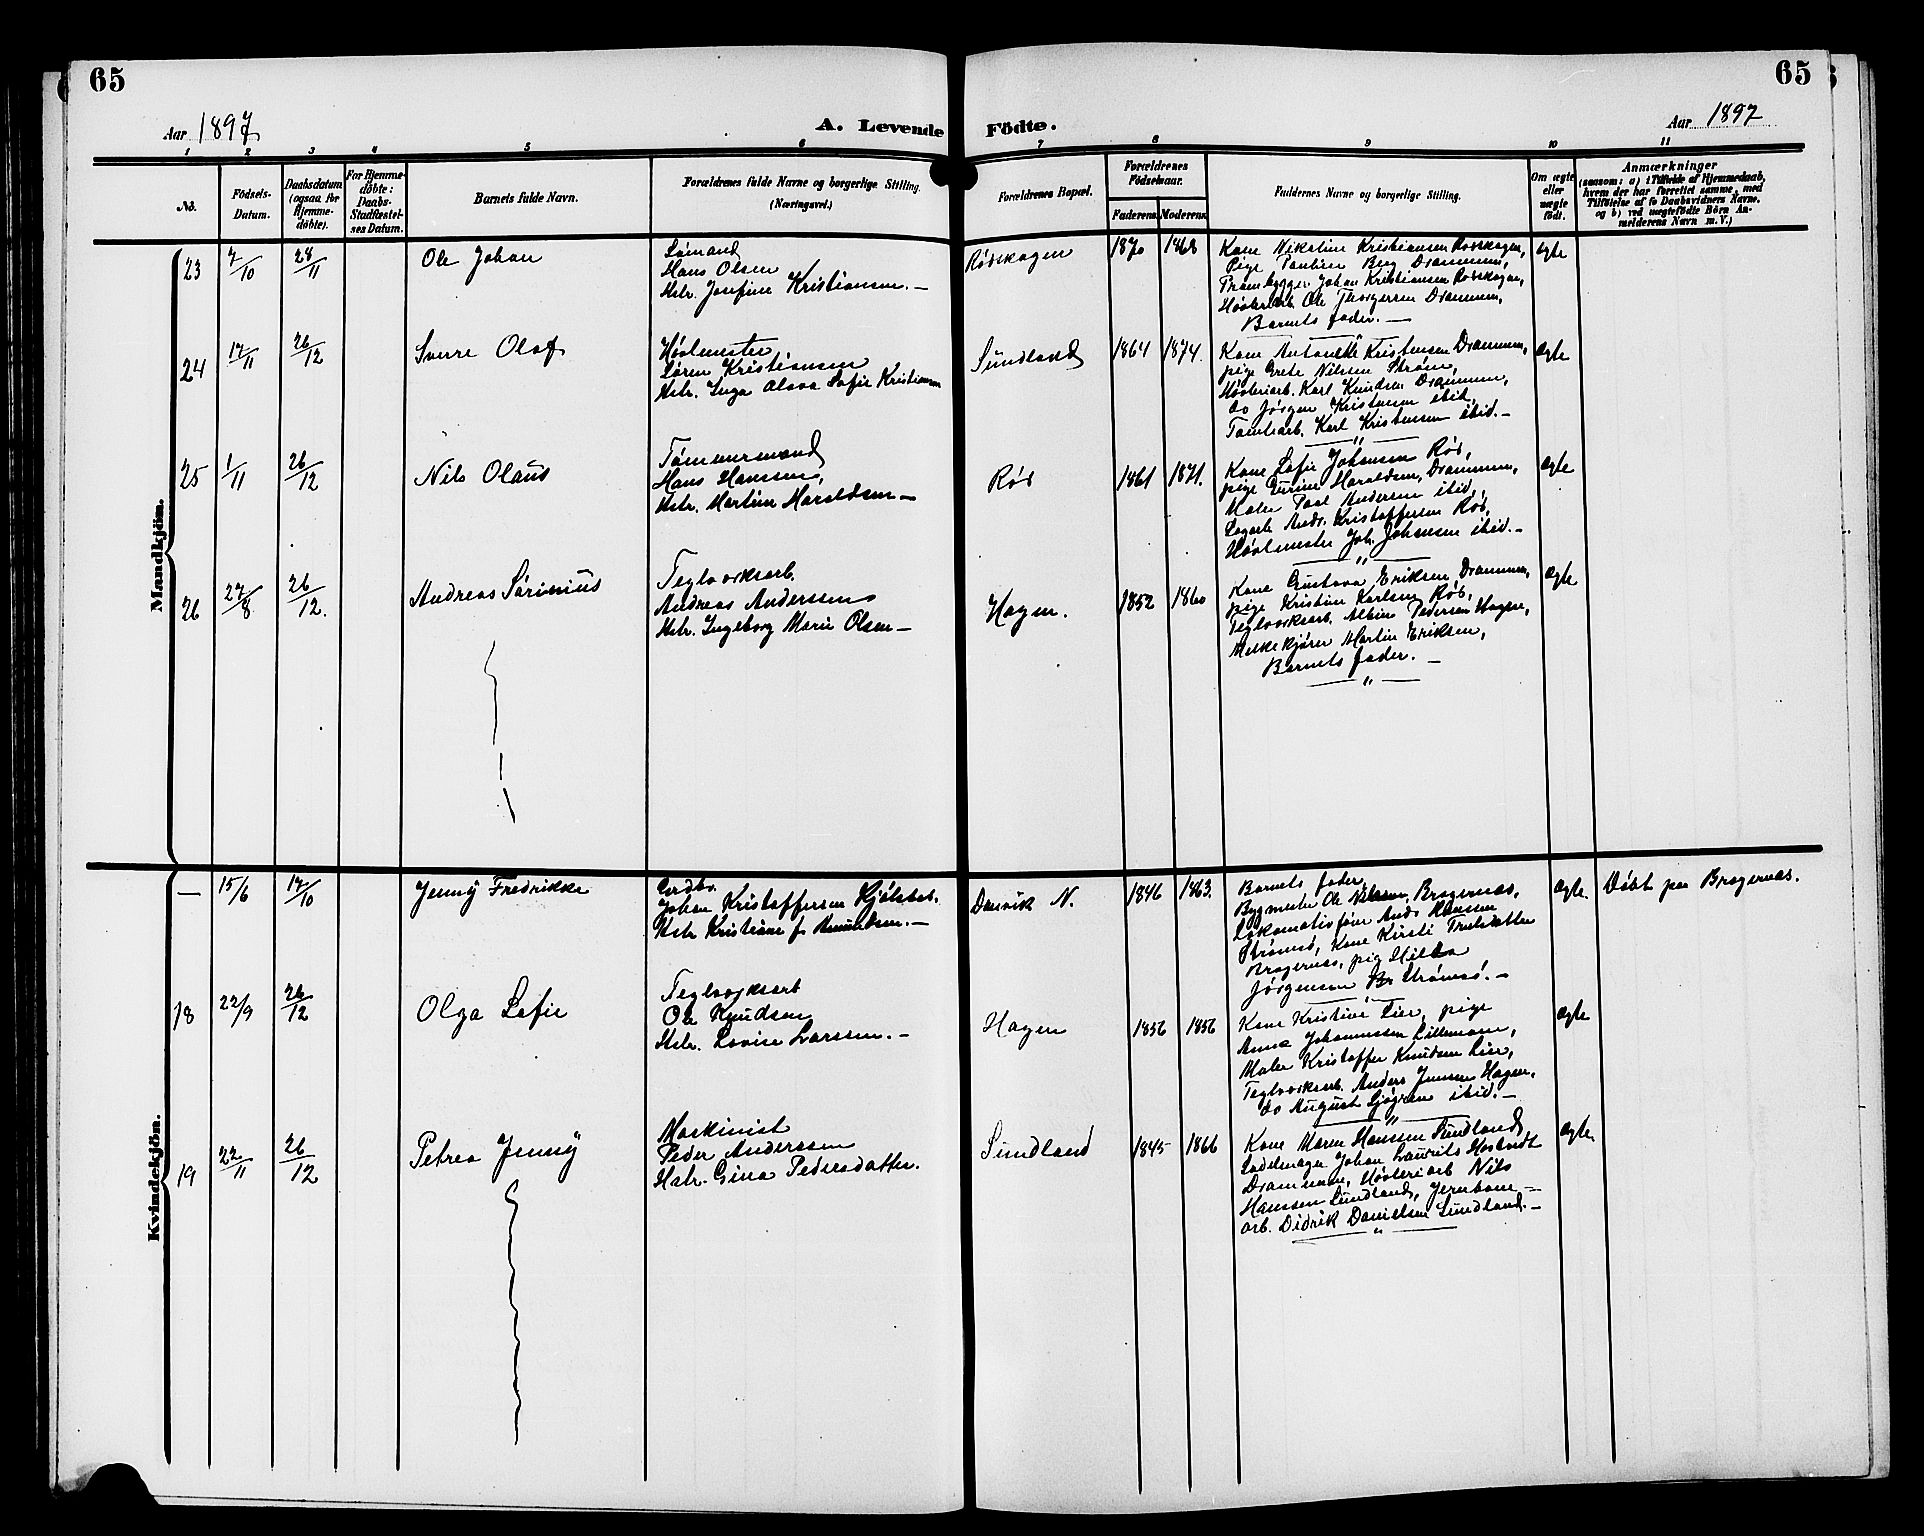 65
65
Aar 1897
A. Levende
Födte.
Aar 1897
1 2 3 4 5 6 7 8 9 10 11
No.
Födsels-
Datum.
Daabsdatum
(ogsaa for
Hjemme-
döbte).
For Hjemme-
döbte:
Daabs-
Stadfæstel-
ses Datum.
Barnets fulde Navn.
Forældrenes fulde Navne og borgerlige Stilling.
(Næringsvei.)
Forældrenes Bopæl.
Forældrenes
Födselsaar.
Faderens.
Moderens.
Faddernes Navne og borgerlige Stilling.
Om ægte
eller
uægte
födt.
Anmærkninger
(saasom: a) i Tilfælde af Hjemmedaab,
hvem der har forrettet samme, med
Tilföielse af to Daabsvidners Navne,
og b) ved uægtefödte Börn An-
melderens Navn m. V.)
Mandkjön.
23 7/10 28/11
Ole Johan
Sömand
Hans Olsen
Hstr. Josefine Kristiansen. —
Rödskogen
1870 1868
Kone Nikoline Kristiansen Rödskogen,
Pige Pauline Berg Drammen,
Prambygger Johan Kristiansen Rödskogen,
Høvleriarb. Ole Thorgersen Drammen,
Barnets fader. —
ægte
24 17/11 26/12
Sverre Olaf
Høvlmester
Sören Kristiansen
Hstr. Inga Olava Sofie Kristiansen
Sundland
1864 1874.
Kone Antonette Kristensen Drammen,
pige Grete Nilsen Strøm,
Høvleriarb. Karl Knudsen Drammen,
do Jörgen Kristensen ibid,
Tomtearb. Karl Kristensen ibid. —
ægte
25 1/11 26/12
Nils Olaus
Tömmermand
Hans Hanssen,
Hstr. Martine Haraldsen —
Röd
1861 1871.
Kone Sofie Johansen Röd,
pige Gurine Haraldsen, Drammen,
Maler Paul Andersen ibid,
Sagarb. Andr. Kristoffersen Röd,
Høvlmester Joh. Johansen ibid. —
ægte
26 27/8 26/12.
Andreas Sörinius
Teglværksarb.
Andreas Anderssen
Hstr. Ingeborg Marie Olsen —
Hagen.
1852 1860
Kone Gustava Eriksen, Drammen,
pige Kristine Karlsen Röd,
Teglværksarb. Albin Pedersen Hagen,
Melkekjører Martin Eriksen,
Barnets fader. —
ægte
Kvindekjön.
— 15/6 17/10
Jenny Fredrikke
Gerdbr.
Johan Kristoffersen Kjölstad.
Hstr Kristiane f. Amundsen. —
Danvik N.
1846 1863.
Barnets fader,
Bygmester Ole Nilssen, Bragernæs,
Lokomotivfører Andr Hanssen
Strömsö, Kone Kirsti Trulsdatter
Bragernæs, pig Hilda
Jörgensen Br Strömsö. —
ægte.
Döbt paa Bragernæs.
18 22/9 26/12
Olga Sofie
Teglværksarb
Ole Knudsen
Hstr. Lovise Larssen. —
Hagen
1856 1856
Kone Kristine Lier, pige
Anna Johannessen Lillemoen,
Maler Kristoffer Knudsen Lier,
Teglværksarb. Anders Jensen Hagen,
do August Sjögren ibid. —
ægte
19 22/11 26/12
Petrea Jenny
Maskinist
Peder Anderssen
Hstr. Gina Pedersdatter.
Sundland
1845 1866
Kone Maren Hanssen Sundland
Sadelmager Johan Laurits
Drammen, Høvleriarb Nils
Hanssen Sundland, Jernbane-
arb. Didrik Danielsen Sundland. —
ægte.